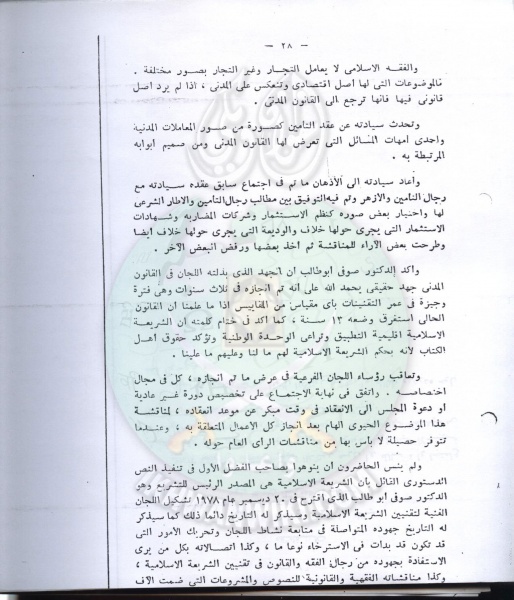 — ٢٨ —
والفقه الاسلامى لا يعامل التجار وغير التجار بصور مختلفة .
فالموضوعات التى لها أصل اقتصادى وتنعكس على المدنى ، اذا لم يرد أصل
قانونى فيها فانها ترجع الى القانون المدنى .
وتحدث سيادته عن عقد التأمين كصورة من صور المعاملات المدنية
واحدى أمهات المسائل التى تعرض لها القانون المدنى ومن صميم ابوابه
المرتبطة به .
وأعاد سيادته الى الأذهان ما تم فى اجتماع سابق عقده سيادته مع
رجال التأمين والأزهر وتم فيه التوفيق بين مطالب رجال التأمين والاطار الشرعى
لها واختيار بعض صوره كنظم الاستثمار وشركات المضاربه وشهادات
الاستثمار التى يجرى حولها خلاف والوديعة التى يجرى حولها خلاف ايضا
وطرحت بعض الآراء للمناقشة ثم أخذ بعضها ورفض البعض الآخر .
وأكد الدكتور صوفى ابوطالب ان الجهد الذى بذلته اللجان فى القانون
المدنى جهد حقيقى يحمد الله على أنه تم انجازه فى ثلاث سنوات وهى فترة
وجيزة فى عمر التقنينات بأى مقياس من المقاييس اذا ما علمنا ان القانون
الحالى استغرق وضعه ١٣ سنة ، كما أكد فى ختام كلمته ان الشريعة
الاسلامية اقليمية التطبيق وتراعى الوحدة الوطنية وتؤكد حقوق أهل
الكتاب لأنه بحكم الشريعة الاسلامية لهم ما لنا وعليهم ما علينا .
وتعاقب رؤساء اللجان الفرعية فى عرض ما تم انجازه ، كل فى مجال
اختصاصه . واتفق فى نهاية الاجتماع على تخصيص دورة غير عادية
او دعوة المجلس الى الانعقاد فى وقت مبكر عن موعد انعقاده ، لمناقشة
هذا الموضوع الحيوى الهام بعد انجاز كل الأعمال المتعلقة به ، وعندما
تتوفر حصيلة لا بأس بها من مناقشات الرأى العام حوله .
ولم ينس الحاضرون ان ينوهوا بصاحب الفضل الأول فى تنفيذ النص
الدستورى القائل بأن الشريعة الاسلامية هى المصدر الرئيس للتشريع وهو
الدكتور صوفى ابو طالب الذى اقترح فى ٢٠ ديسمبر عام ١٩٧٨ تشكيل اللجان
الفنية لتقنين الشريعة الاسلامية وسيذكر له التاريخ دائما ذلك كما سيذكر
له التاريخ جهوده المتواصلة فى متابعة نشاط اللجان وتحريك الأمور التى
قد تكون قد بدأت فى الاسترخاء نوعا ما ، وكذا اتصالاته بكل من يرى
الاستفادة بجهوده من رجال الفقه والقانون فى تقنين الشريعة الاسلامية ،
وكذا مناقشاته الفقهية والقانونية للنصوص والمشروعات التى ضمت آلاف